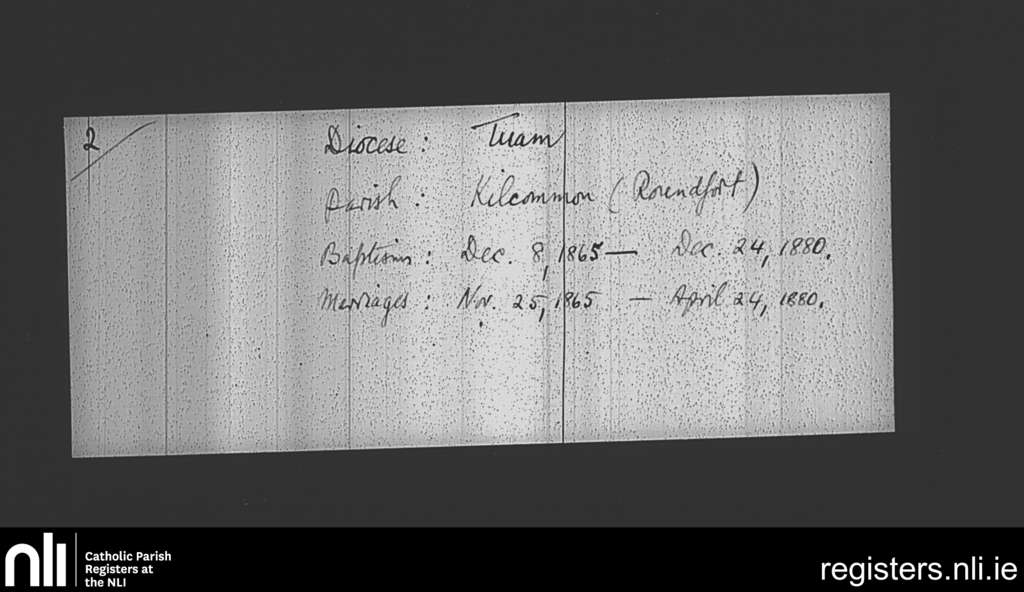 2
Diocese : Tuam
Parish : Kilcommon (Roundfort)
Baptisms : Dec. 8, 1865 — Dec. 24, 1880.
Marriages : Nov. 25, 1865 — April 24, 1880.
nli
Catholic Parish
Registers at
the NLI
registers.nli.ie